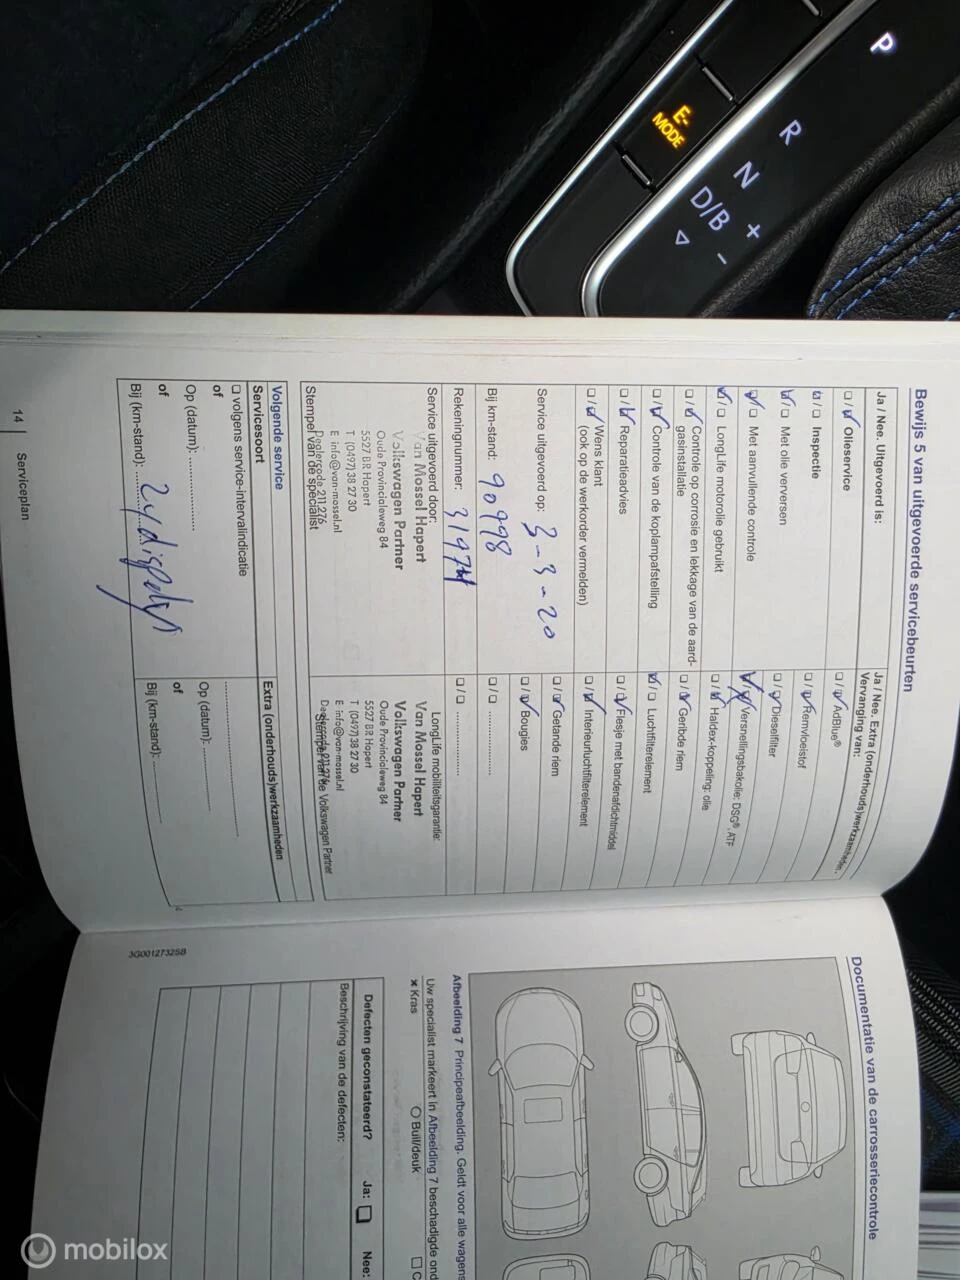 P
R
N
D/B
+
-
E-
MODE
Bewijs 5 van uitgevoerde servicebeurten
Ja / Nee. Uitgevoerd is:
☐/☑ Olieservice
☑/☐ Inspectie
☑/☐ Met olie verversen
☑/☐ Met aanvullende controle
☑/☐ LongLife motorolie gebruikt
☐/☑ Controle op corrosie en lekkage van de aard-
gasinstallatie
☐/☑ Controle van de koplampafstelling
☐/☑ Reparatieadvies
☐/☑ Wens klant
(ook op de werkorder vermelden)
Service uitgevoerd op: 3-3-20
Bij km-stand: 90998
Rekeningnummer:
Service uitgevoerd door:
Van Mossel Hapert
Volkswagen Partner
Oude Provincialeweg 84
5527 BR Hapert
T (0497) 38 27 30
E info@van-mossel.nl
Dealercode 211-276
Stempel van de specialist
Ja / Nee. Extra (onderhouds)werkzaamheden,
Vervanging van:
☐/☑ AdBlue®
☐/☑ Remvloeistof
☐/☑ Dieselfilter
Versnellingsbakolie: DSG®, ATF
☐/☑ Haldex-koppeling: olie
☐/☑ Geribde riem
☑/☐ Luchtfilterelement
☐/☑ Flesje met bandenafdichtmiddel
☐/☑ Interieurluchtfilterelement
☐/☑ Getande riem
☐/☑ Bougies
☐/☐ ....................
☐/☐ ....................
LongLife mobiliteitsgarantie:
Van Mossel Hapert
Volkswagen Partner
Oude Provincialeweg 84
5527 BR Hapert
T (0497) 38 27 30
E info@van-mossel.nl
Dealercode 211-276
Stempel van de Volkswagen Partner
Volgende service
Servicesoort
☐ volgens service-intervalindicatie
of
Op (datum): ....................
of
Bij (km-stand): ....................
Extra (onderhouds)werkzaamheden
....................
Op (datum): ....................
of
Bij (km-stand): ....................
14 Serviceplan
3G0012732SB
Documentatie van de carrosseriecontrole
Afbeelding 7 Principeafbeelding. Geldt voor alle wagens
Uw specialist markeert in Afbeelding 7 beschadigde ond
× Kras
○ Buil/deuk
Defecten geconstateerd?
Ja: ☐
Nee:
Beschrijving van de defecten:
mobilox